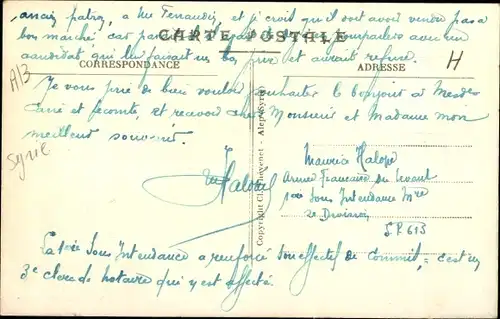 ancien patron, à Me Fenaudin et je crois qu'il avait vendu pas à
bon marché car
CARTE POSTALE
candidat qui lui faisait un bon prix et aurait refusé.
CORRESPONDANCE
ADRESSE
H
A/3
Je vous prie de bien vouloir souhaiter le bonjour à
et recevoir cher Monsieur et Madame mon
meilleur souvenir.
Syrie
MHalope
Copyright Cl. Thévenet - Alep (Syrie)
Maurice Halope
Armée Française du Levant
Sous Intendance Mre
2e Division
SP. 613
La Sous Intendance a renforcé son effectif de commis, = c'est un
3e clerc de notaire qui y est affecté.